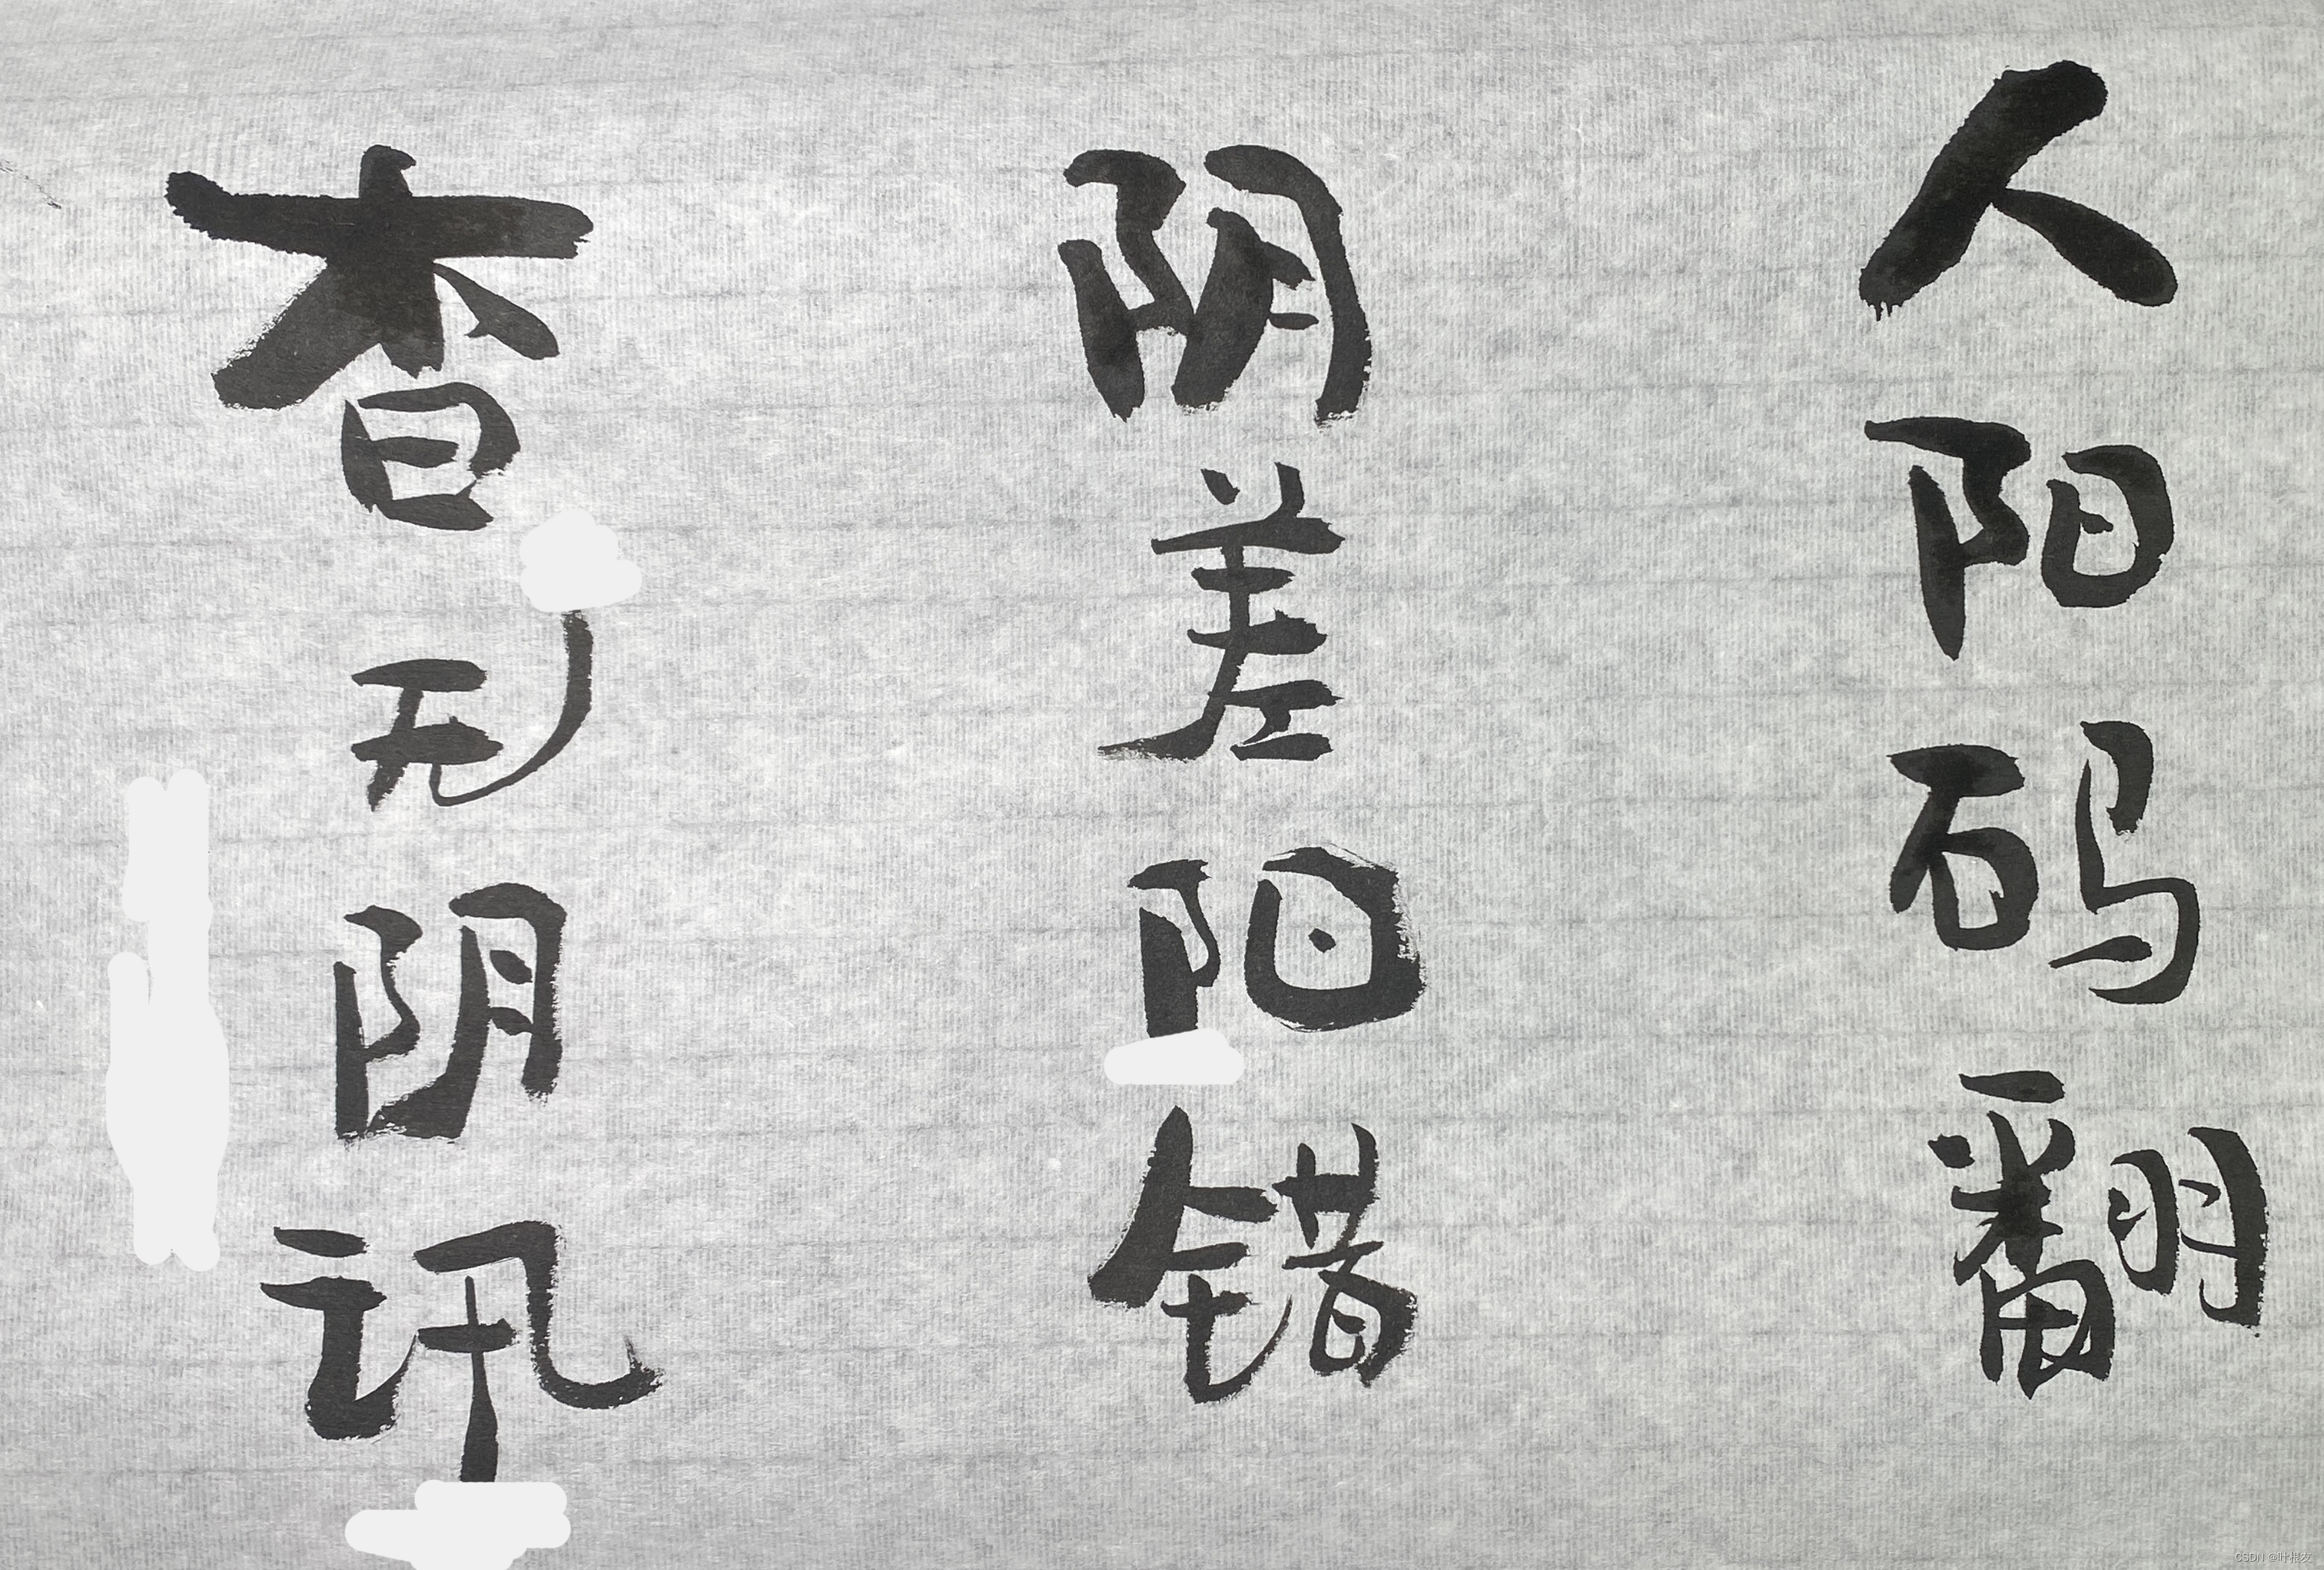 人阳码翻
阴差阳错
杳无阴讯
CSDN @叶根友